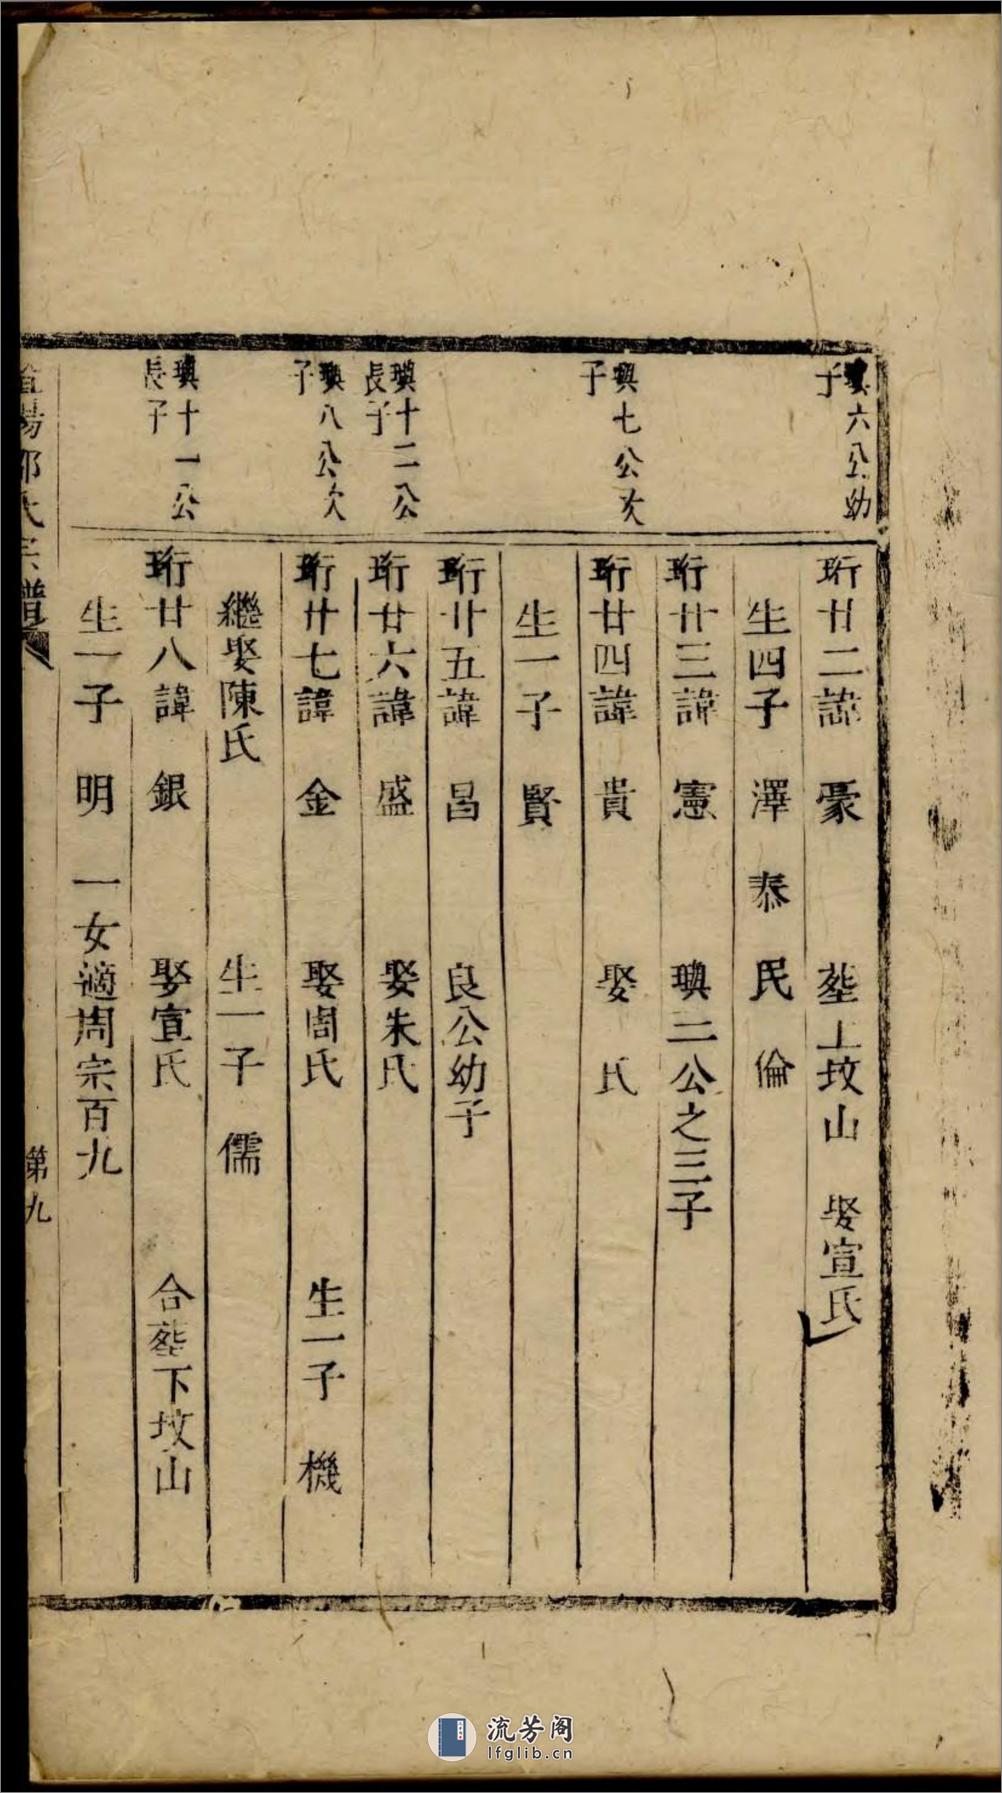 璵六公幼
子
珩廿二諱 豪 塟上坟山 娶宣氏
生四子 澤 泰 民 倫
珩廿三諱 憲 璵二公之三子
璵七公次
子
珩廿四諱 貴 娶 氏
生一子 賢
珩廿五諱 昌 良公幼子
璵十二公
長子
珩廿六諱 盛 娶朱氏
璵八公次
子
珩廿七諱 金 娶周氏 生一子 機
繼娶陳氏 生一子 儒
璵十一公
長子
珩廿八諱 銀 娶宣氏 合塟下坟山
生一子 明 一女適周宗百九
陽郭氏宗譜 第九
流芳阁
lfglib.cn